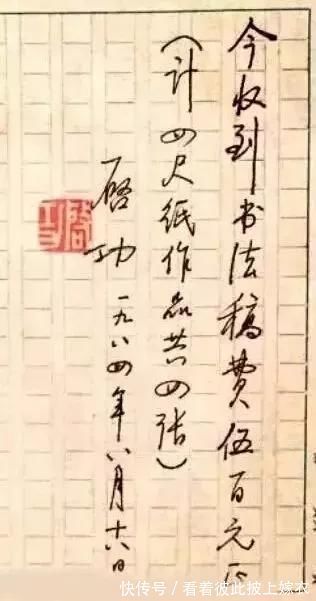 今收到书法稿费伍百元正
(计四尺纸作品共四张)
启功
一九八四年八月十六日
启功
快传号/看着彼此披上嫁衣